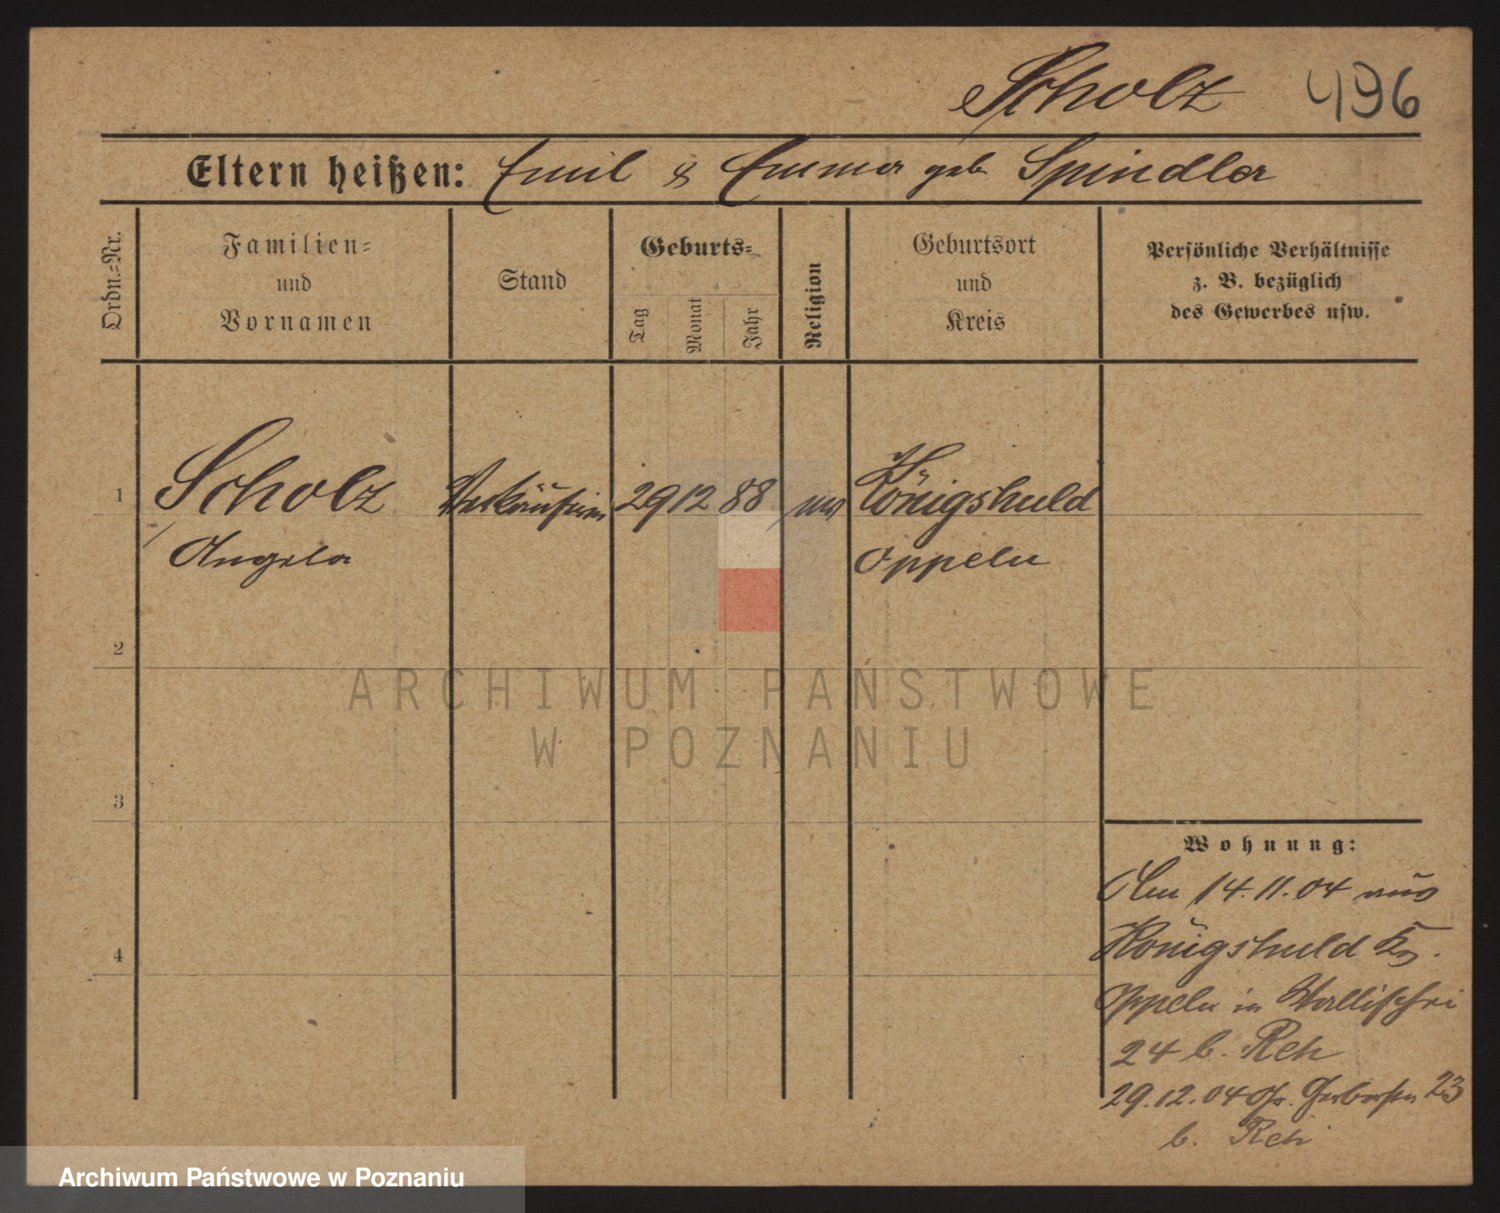 Scholz 496
Eltern heißen: Emil & Emma geb Spindler
Ordn.=Nr.
Familien=
und
Vornamen
Stand
Geburts=
Tag
Monat
Jahr
Religion
Geburtsort
und
Kreis
Persönliche Verhältnisse
z. B. bezüglich
des Gewerbes usw.
1 Scholz Verkäuferin 29 12 88 Königshuld
Angela Oppeln
2
3
4
Wohnung:
Am 14.11.04 aus
Königshuld Krs.
Oppeln in Wallischei
24 b. Reh
29.12.04 Gr. Gerberstr 23
b. Reh
ARCHIWUM PAŃSTWOWE
W POZNANIU
Archiwum Państwowe w Poznaniu